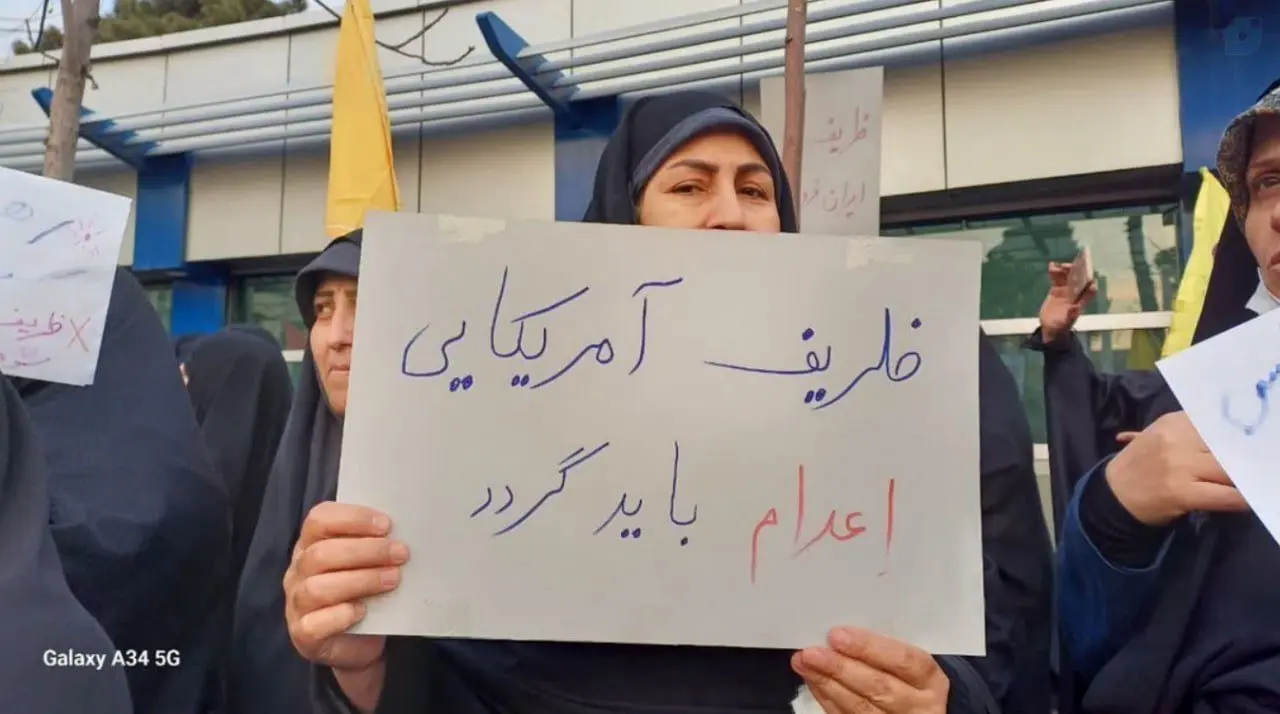 ظریف آمریکایی
اِعدام باید گردد
ظریف
ایران
ظریف
Galaxy A34 5G